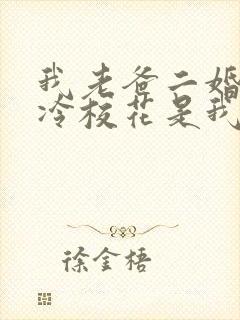 我老爸二婚
冷校花是我
徐金梧